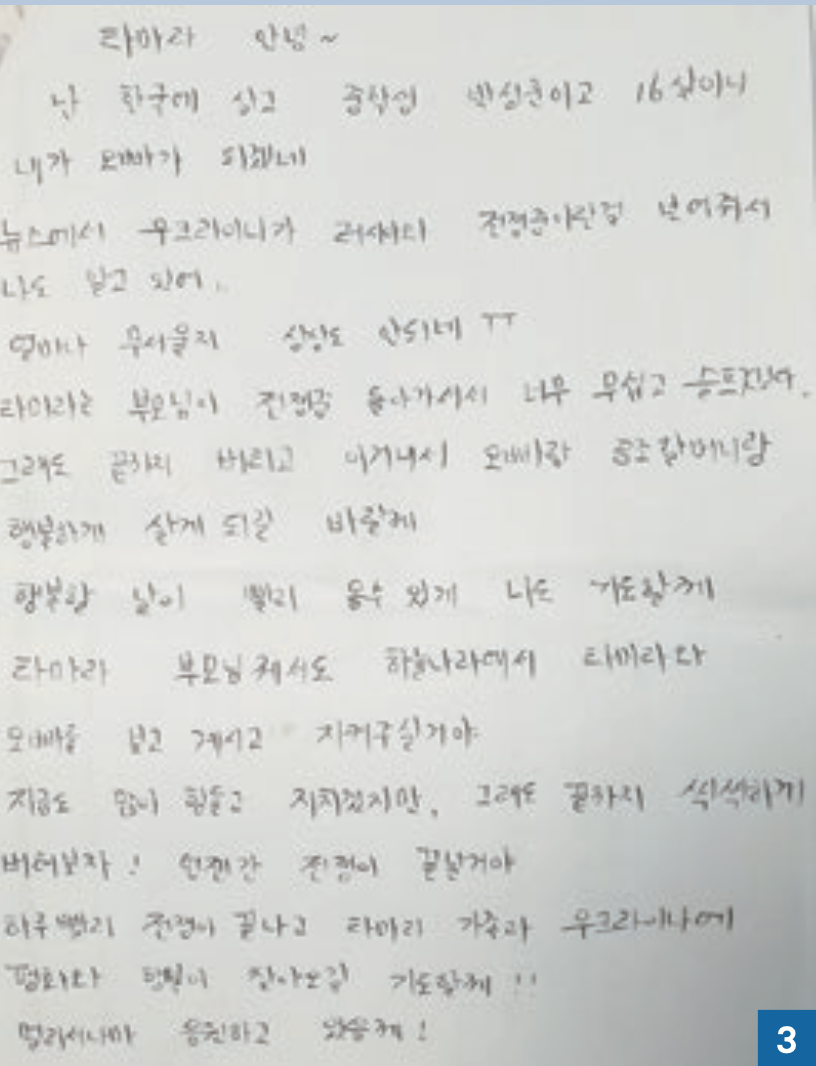 타마라 안녕~
난 한국에 살고 중학생 이고 16살이니
내가 오빠가 되겠네
뉴스에서 우크라이나가 러시아와 전쟁중이란걸 보여줘서
나도 알고 있어..
얼마나 무서울지 상상도 안되네 ㅜㅜ
타마라는 부모님이 전쟁중 돌아가셔서 너무 무섭고 슬프겠다.
그래도 끝까지 버티고 이겨내서 오빠랑 증조할머니랑
행복하게 살게 되길 바랄께
행복한 날이 빨리 올수 있게 나도 기도할께
타마라 부모님께서도 하늘나라에서 타마라와
오빠를 보고 계시고 지켜주실거야
지금도 많이 힘들고 지치겠지만, 그래도 끝까지 씩씩하게
버텨보자! 언젠간 전쟁이 끝날거야
하루빨리 전쟁이 끝나고 타마라 가족과 우크라이나에
평화와 찾아오길 기도할께!!
멀리서나마 응원하고 있을께!
3